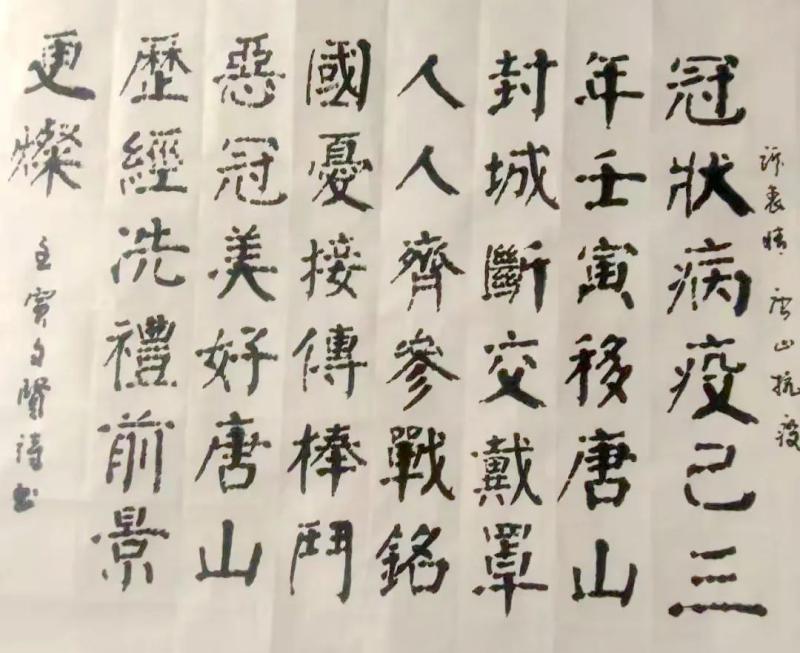 訴衷情 唐山抗疫
冠狀病疫己三
年壬寅移唐山
封城斷交戴罩
人人齊參戰銘
國憂接傳棒鬥
惡冠美好唐山
歷經洗禮前景
更燦
壬寅 賢詩书